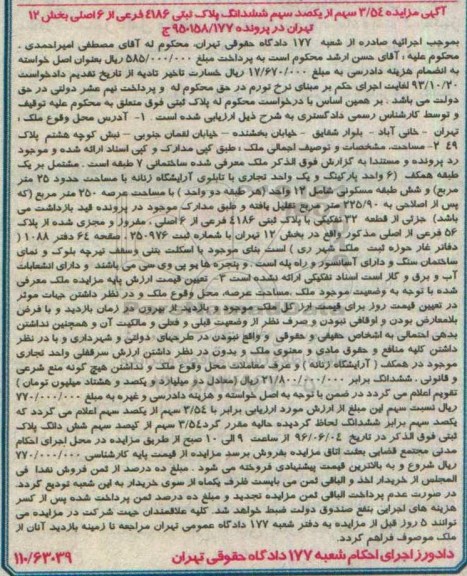 آگهی مزایده ۳/۵۴ سهم از یکصد سهم ششدانگ پلاک ثبتی ۴۱۸۶ فرعی از ۶ اصلی بخش ۱۲
تهران در پرونده ۹۵۰۱۵۸/۱۷۷ ج
بموجب اجرائیه صادره از شعبه ۱۷۷ دادگاه حقوقی تهران، محکوم له آقای مصطفی امیراحمدی ـ
محکوم علیه : آقای حسن ارشد محکوم است به پرداخت مبلغ ۵۸۵/۰۰۰/۰۰۰ ریال بعنوان اصل خواسته
به انضمام هزینه دادرسی به مبلغ ۱۷/۶۷۰/۰۰۰ ریال خسارت تاخیر تادیه از تاریخ تقدیم دادخواست
۹۳/۱۰/۲۰ لغایت اجرای حکم بر مبنای نرخ تورم در حق محکوم له و پرداخت نیم عشر دولتی در حق
دولت می باشد . بر همین اساس با درخواست محکوم له پلاک ثبتی فوق متعلق به محکوم علیه توقیف
و توسط کارشناس رسمی دادگستری به شرح ذیل ارزیابی شده است . ۱- آدرس محل وقوع ملک ،
تهران - خانی آباد - بلوار شقایق - خیابان بخشنده – خیابان لقمان جنوبی – نبش کوچه هشتم پلاک
۴۹ ۲- مساحت، مشخصات و توصیف اجمالی ملک : طبق کپی مدارک و کپی اسناد ارائه شده و موجود
رد پرونده و مستندا به گزارش فوق الذکر ملک معرفی شده ساختمانی ۷ طبقه است . مشتمل بر یک
طبقه همکف (۶ واحد پارکینگ و یک واحد تجاری با تابلوی آرایشگاه زنانه با مساحت حدود ۲۵ متر
مربع) و شش طبقه مسکونی شامل ۱۲ واحد (هر طبقه دو واحد ) با مساحت عرصه ۲۵۰ متر مربع (که
پس از اصلاحی به ۲۳۵/۹۰ متر مربع تقلیل یافته و طبق مدارک موجود در پرونده قید بازداشت می
باشد) جزئی از قطعه ۳۲ تفکیکی با پلاک ثبتی ۴۱۸۶ فرعی از ۶ اصلی ، مفروز و مجزی شده از پلاک
۵۶ فرعی از اصلی مذکور واقع در بخش ۱۲ تهران با شماره ثبت ۲۵۰۹۷۶ ، صفحه ۶۴ دفتر ۱۰۸۸ (
دفاتر غار حوزه ثبت ملک شهر ری ) است بنای موجود با اسکلت بتنی و سقف تیرچه بلوک و نمای
ساختمان سنگ و دارای آسانسور و راه پله است . و پنجره ها یو پی وی سی می باشند و دارای انشعابات
آب و برق و گاز است اسناد تفکیکی ارائه نشده است ۳- تعیین قیمت ارزش پایه مزایده ملک معرفی
شده با توجه به وضعیت موجود ملک ،مساحت عرصه، محل وقوع ملک و در نظر داشتن جهات موثر
در تعیین قیمت روز برای قیمت ارز کل ملک موجود و بازدید از بیرون در زمان بازدید و با فرض
بلامعارض بودن و اوقافی نبودن و صرف نظر از وضعیت قبلی و فعلی و مالکیت آن و همچنین نداشتن
بدهی احتمالی به اشخاص حقیقی و حقوقی و واقع نبودن در طرحهای دولتی و شهرداری و با در نظر
داشتن کلیه منافع و حقوق مادی و معنوی ملک و بدون در نظر داشتن ارزش سرقفلی واحد تجاری
موجود در همکف ( آرایشگاه زنانه ) و عرف معاملات محل وقوع ملک و نداشتن هیچ گونه منع شرعی
و قانونی ، ششدانگ برابر ۲۱/۸۰۰/۰۰۰/۰۰۰ ریال (معادل دو میلیارد و یکصد و هشتاد میلیون تومان )
تقویم اعلام می گردد در ضمن با توجه به اصل خواسته و هزینه دادرسی و غیره به مبلغ ۷۷۰/۰۰۰/۰۰۰
ریال نسبت سهم این مبلغ از ارزش مورد ارزیابی برابر با ۳/۵۴ سهم از یکصد سهم اعلام می گردد که
یکصد سهم برابر ششدانگ لحاظ گردیده حالیه مقرر گرد ۳/۵۴ سهم از کیصد سهم شش دانگ پلاک
ثبتی فوق الذکر در تاریخ ۹۶/۰۶/۰۴ از ساعت ۹ الی ۱۰ صبح از طریق مزایده در محل اجرای احکام
مدنی مجتمع قضایی بعثت اتاق مزایده بفروش برسد مزایده از قیمت پایه کارشناسی ۷۷۰/۰۰۰/۰۰۰
ریال شروع و به بالاترین قیمت پیشنهادی فروخته می شود . مبلغ ده درصد از ثمن فروش نقدا فی
المجلس از خریدار اخذ و الباقی ثمن می بایست ظرف یکماه از سوی خریدار به این شعبه تودیع گردد.
در صورت عدم پرداخت الباقی ثمن مزایده تجدید و مبلغ ده درصد ثمن پرداخت شده پس از کسر
هزینه های اجرایی بنفع صندوق دولت ضبط خواهد شد. کلیه علاقمندان جهت شرکت در مزایده می
توانند ۵ روز قبل از مزایده به دفتر شعبه ۱۷۷ دادگاه عمومی تهران مراجعه تا زمینه بازدید آنان از
ملک موصوف فراهم گردد.
دادورز اجرای احکام شعبه ۱۷۷ دادگاه حقوقی تهران
۱۱۰/۶۳۰۳۹